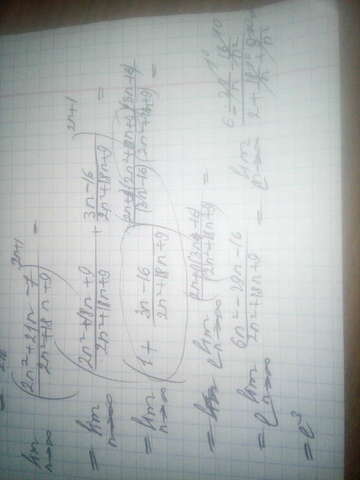 lim n→∞ (2n²+21n−7 / 2n²+18n+9)^2n+1 =
= lim n→∞ (2n²+18n+9 / 2n²+18n+9 + 3n−16 / 2n²+18n+9)^2n+1 =
= lim n→∞ (1 + 3n−16 / 2n²+18n+9) (2n²+18n+9) (3n−16) / (3n−16) (2n²+18n+9) =
= lim e^lim n→∞ (2n+1)(3n−16) / 2n²+18n+9 =
= e^lim n→∞ 6n²−29n−16 / 2n²+18n+9 = e^lim n→∞
= e³